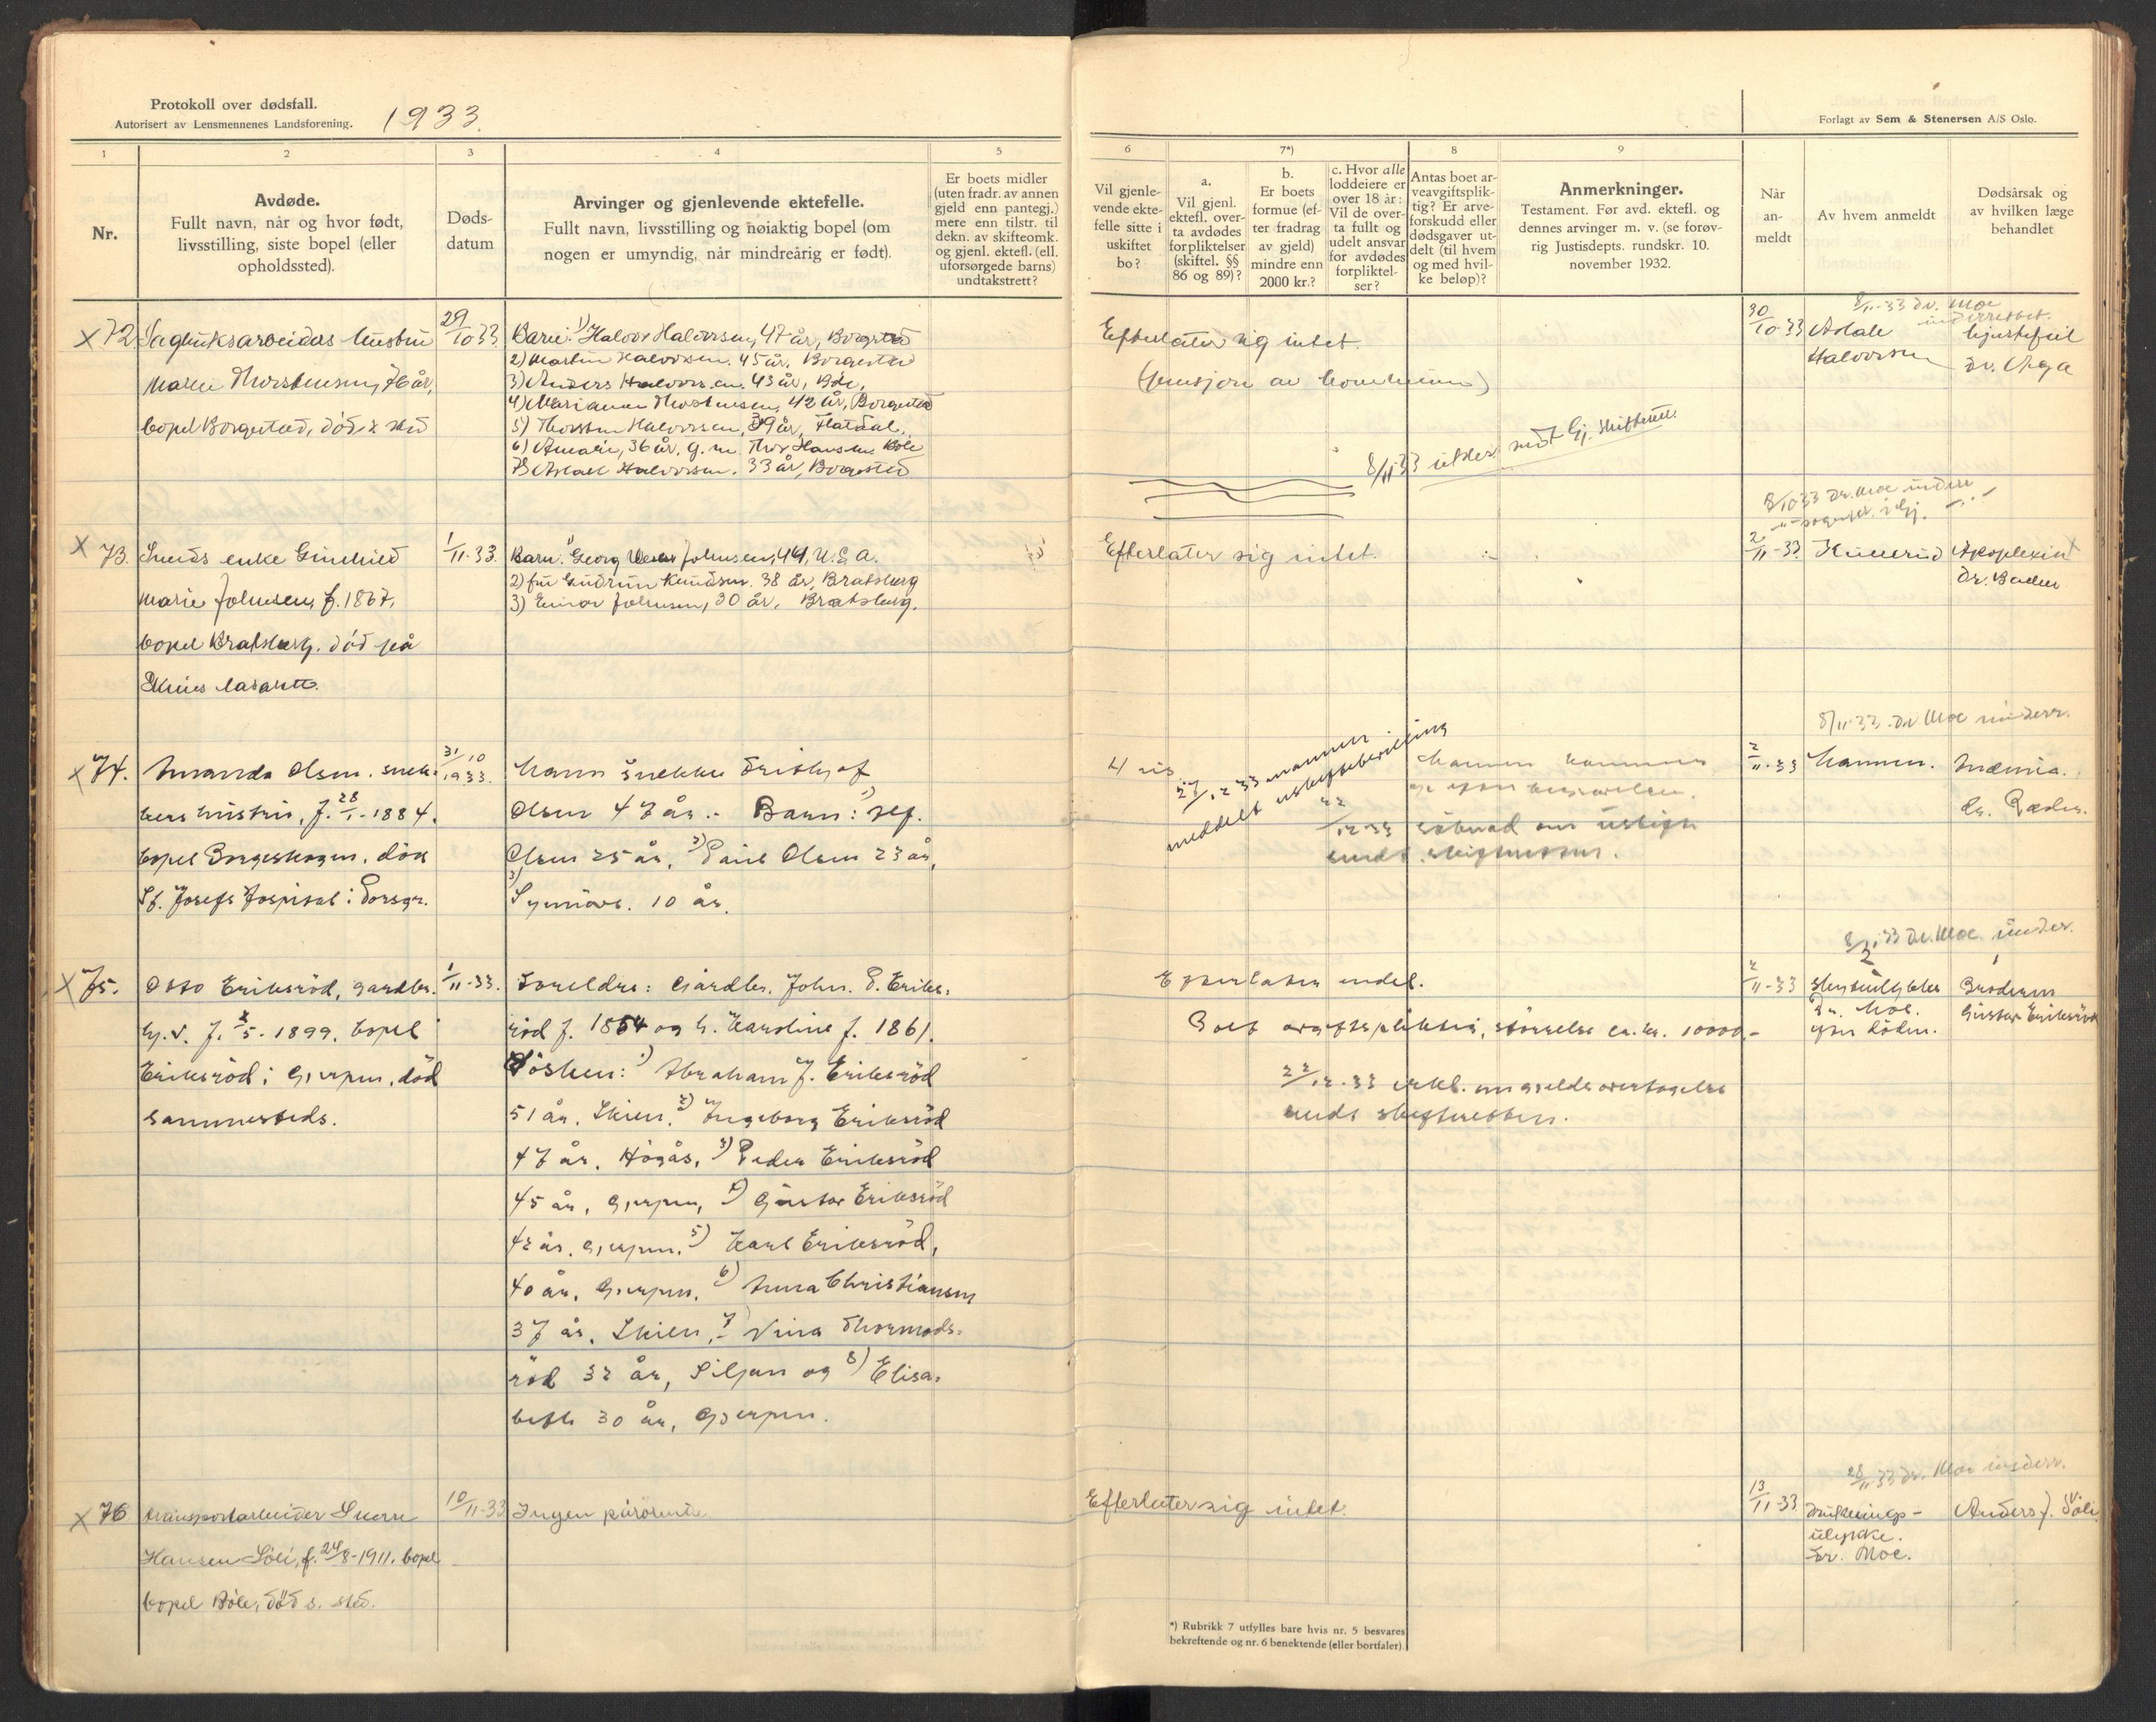 Protokoll over dødsfall.
Autorisert av Lensmennenes Landsforening.
1933.
1
2
3
4
5
Nr.
Avdøde.
Fullt navn, når og hvor født,
livsstilling, siste bopel (eller
opholdssted).
Døds-
datum
Arvinger og gjenlevende ektefelle.
Fullt navn, livsstilling og nøiaktig bopel (om
nogen er umyndig, når mindreårig er født).
Er boets midler
(uten fradr. av annen
gjeld enn pantegj.)
mere enn tilstr. til
dekn. av skifteomk.
og gjenl. ektef. (ell.
uforsørgede barns)
undtakstrett?
x 72
Sagbruksarbeider hustru
Maren Thorstensen, 76 år,
bopel Borgestad, död s. sted
29/10 33
Barn: 1) Halvor Halvorsen, 47 år, Borgestad
2) Martin Halvorsen. 45 år, Borgestad
3) Anders Halvorsen, 43 år, Böle,
4) Marianne Thorstensen, 42 år, Borgestad
5) Thorsten Halvorsen, 39 år, Flatdal.
6) Anmari, 36 år, g. m. Thor Hansen Böle
7) Aslak Halvorsen. 33 år, Borgestad
x 73.
enke Gunhild
Marie Johnsen, f. 1867.
bopel Bratsberg. död på
Skiens lasarett.
1/11-33.
Barn: 1) Georg Johnsen, 44, U.S.A.
2) fru Gudrun Knudsen. 38 år, Bratsberg
3) Einar Johnsen, 30 år, Bratsberg.
x 74.
Amanda Olsen. snek-
kers hustru, f. 28/1-1884.
bopel Borgeskogen. död
St. Josefs Hospital i Porsgr.
31/10
1933.
Mann snekker Frithjof
Olsen 47 år. - Barn: 1) Alf.
Olsen 25 år, 2) Paul Olsen 23 år,
3) Synnöve. 10 år.
x 75.
Otto Eriksröd, gardbr.
f. 5. 1899. bopel
Eriksröd i Gjerpen, död
sammesteds.
1/11-33.
Foreldre: Gårdbr. John. P. Eriks-
röd f. 1854 og h. Karoline f. 1861.
Sösken: 1) Abraham J. Eriksröd
51 år, Skien. 2) Ingeborg Eriksröd
47 år, Högås, 3) Peder Eriksröd
45 år, Gjerpen, 4) Gustav Eriksröd
42 år. Gjerpen. 5) Karl Eriksröd,
40 år, Gjerpen. 6) Anna Christiansen
37 år. Skien, 7) Nina Thormods-
röd 32 år, Siljan og 8) Elisa-
beth 30 år, Gjerpen.
x 76
transportarbeider Sverre
Hansen Söli, f. 24/8-1911. bopel
bopel Böle, död s. sted.
10/11-33
Ingen pårörende
Forlagt av Sem & Stenersen A/S Oslo.
6
7*)
8
9
Vil gjenle-
vende ekte-
felle sitte i
uskiftet
bo?
a.
Vil gjenl.
ektefl. over-
ta avdødes
forpliktelser
(skiftel. §§
86 og 89)?
b.
Er boets
formue (ef-
ter fradrag
av gjeld)
mindre enn
2000 kr.?
c. Hvor alle
loddeiere er
over 18 år:
Vil de over-
ta fullt og
udelt ansvar
for avdødes
forpliktel-
ser?
Antas boet ar-
veavgiftsplik-
tig? Er arve-
forskudd eller
dødsgaver ut-
delt (til hvem
og med hvil-
ke beløp)?
Anmerkninger.
Testament. Før avd. ektefl. og
dennes arvinger m. v. (se forøv-
rig Justisdepts. rundskr. 10.
november 1932.
Når
an-
meldt
Av hvem anmeldt
Dødsårsak og
av hvilken læge
behandlet
Efterlater sig intet.
(pensjon av kommunen)
8/11-33 Gj. skifterett.
8/11-33 Dr. Moe
underrettet.
30/10 33
Aslak
Halvorsen
hjertefeil
Dr. Aga
Efterlater sig intet.
8/10 33 Dr. Moe underr
2/11-33
Apoplexia
27/12 33 mannen
meddelt uskiftebevilling
Mannen kommer
22/12-33 söknad om uskifte
sendt skifteretten.
8/11-33. Dr. Moe underr.
2/11-33
Mannen.
Dr.
8/11 33 Dr. Moe. under.
Efterlater endel.
Boet avgiftspliktig, störrelse ca. kr. 10000.-
22/12-33 erkl. om gjeldsovertagelse
sendt skifteretten.
2/11-33
Dr. Moe.
Broderen
Gustav Eriksröd
28/11 33 Dr. Moe underr.
Efterlater sig intet.
13/11-33
ulykke.
Dr. Moe.
Anders J. Söli
*) Rubrikk 7 utfylles bare hvis nr. 5 besvares
bekreftende og nr. 6 benektende (eller bortfaler).